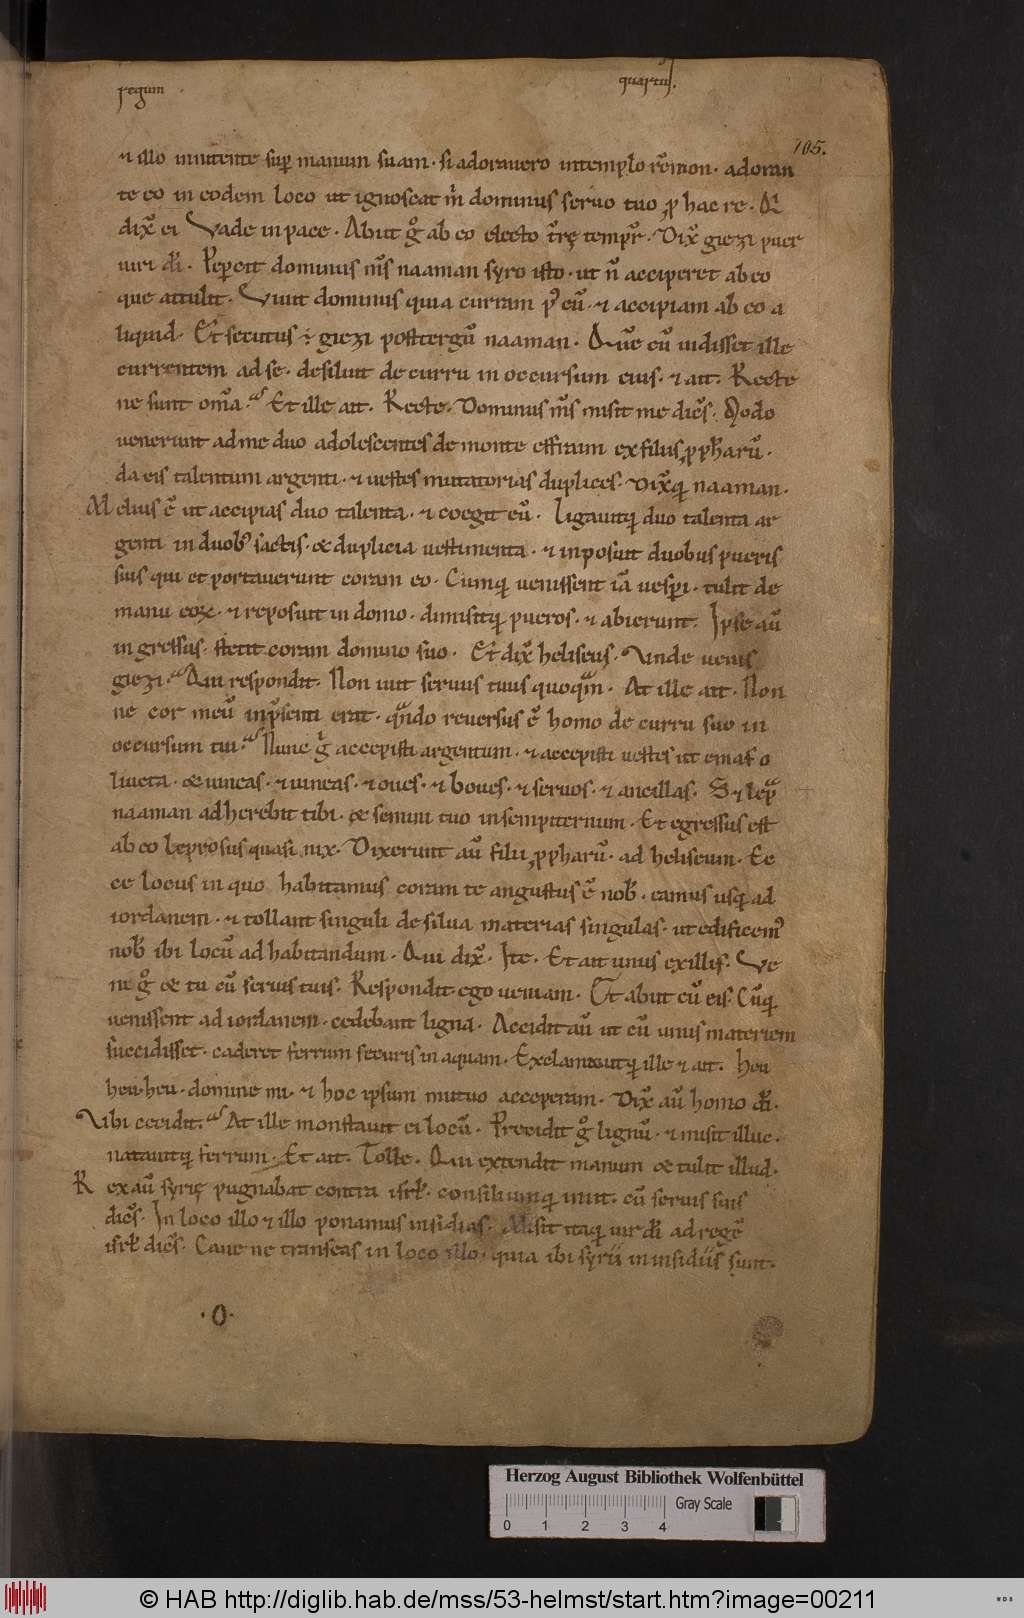 regum quartus.
105.
⁊ illo innitente sup̄ manum suam · si adoravero intemplo rēmon · adoran
te eo in eodem loco ut ignoscat m̄ dominus servo tuo ꝓ hac re · Q̄
dix̄ ei Vade in pace · Abiit g̊ ab eo electo t̄rę tempr̄ · Dix̄ giezi puer
uiri dī · Pepercit dominus m̄s naaman syro isto · ut n̄ acciperet ab eo
que attulit · Vivit dominus quia curram p' eū · ⁊ accipiam ab eo a
liquid · Et secutus ÷ giezi posttergū naaman · Quē cū uidisset ille
currentem ad se · desiluit de curru in occursum eius · ⁊ ait · Recte
ne sunt om̄a · Et ille ait · Recte · Dominus m̄s misit me dicēs · Modo
venerunt adme duo adolescentes de monte effraim exfiliis ꝓphaꝛū ·
da eis talentum argenti · ⁊ uestes mutatorias duplices · Dix̄q; naaman ·
Melius ē ut accipias duo talenta · ⁊ coegit eū · ligavitq; duo talenta ar
genti in duob; sactis · & duplicia vestimenta · ⁊ inposuit duobus pueris
suis qui et portaverunt coram eo · Cumq; venissent iā vesp̄i · tulit de
manu eoꝝ · ⁊ reposuit in domo · dimisitq; pueros · ⁊ abierunt · Ipse aū
ingressus · stetit coram domino suo · Et dix̄ heliseus · Unde venis
giezi · Qui respondit · Non ivit servus tuus quoqm̄ · At ille ait · Non
ne cor meū inp̄senti erat · qn̄do reversus ē homo de curru suo in
occursum tui · Nunc g̊ accepisti argentum · ⁊ accepisti vestes ut emas o
liveta · & vineas · ⁊ vineas · ⁊ oves · ⁊ boves · ⁊ servos · ⁊ ancillas · S⁊ lep̄
naaman adherebit tibi · & semini tuo insempiternum · Et egressus est
ab eo leprosus quasi nix · Dixerunt aū filii ꝓpharū · ad heliseum · Ec
ce locus in quo habitamus coram te angustus ē nob̄ · eamus usq; ad
iordanem · ⁊ tollant singuli de silva materias singulas · ut edificem;
nob̄ ibi locū ad habitandum · Qui dix̄ · Ite · Et ait unus exillis · Ve
ni g̊ & tu cū servis tuis · Respondit · ego veniam · Et abiit cū eis · Cūq;
venissent ad iordanem · cedebant ligna · Accidit aū ut cū unus materiem
succidisset · caderet ferrum securis in aquam · Exclamavitq; ille ⁊ ait · heu
heu · heu · domine mi · ⁊ hoc ipsum mutuo acceperam · Dix̄ aū homo dī ·
Vbi cecidit · At ille monstravit ei locū · Precidit g̊ lignū · ⁊ misit illuc ·
natavitq; ferrum · Et ait · Tolle · Qui extendit manum & tulit illud ·
Rex aū syrię pugnabat contra isrl̄ · consiliumq; iniit · cū servis suis
dicēs · In loco illo ⁊ illo ponamus insidias · Misit itaq; uir dī ad regē
isrl̄ dicēs · Cave ne transeas in loco illo · quia ibi syrii in insidiis sunt ·
· O ·
Herzog August Bibliothek Wolfenbüttel
Gray Scale
0 1 2 3 4
© HAB http://diglib.hab.de/mss/53-helmst/start.htm?image=00211